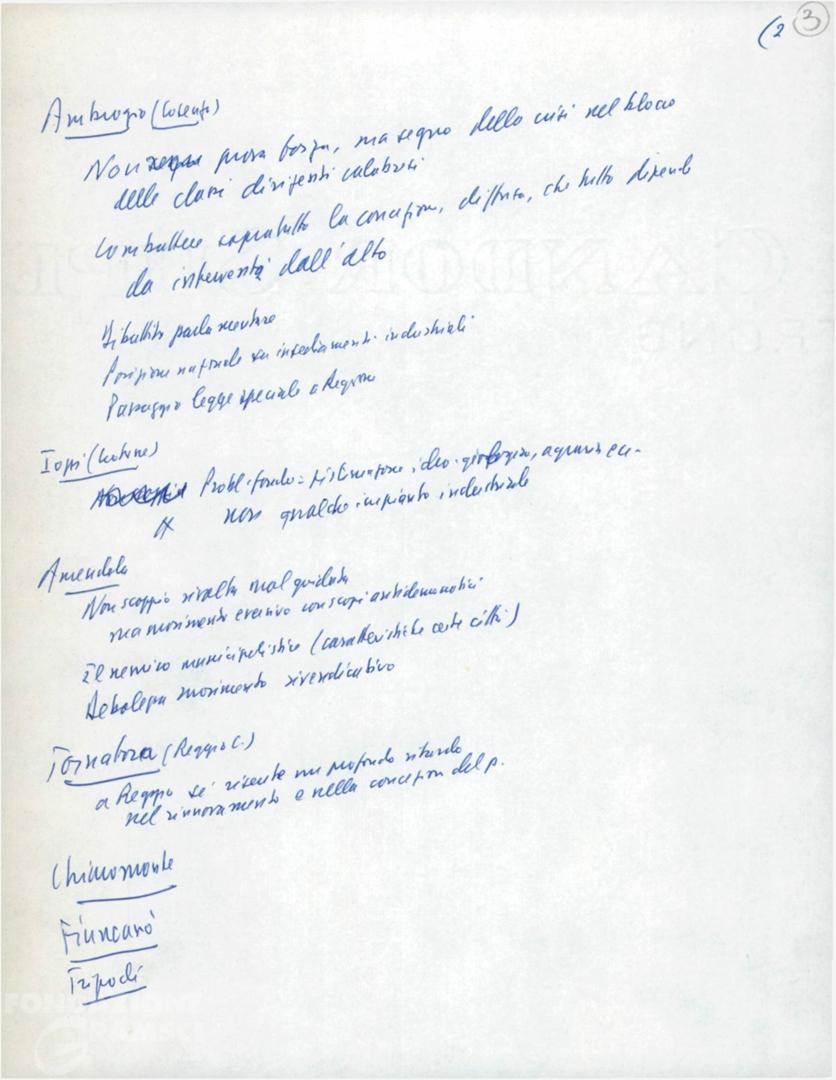 (2 3
Ambrogio (Cosenza)
Non prova forza, ma segno della crisi nel blocco
delle classi dirigenti calabresi
Combattere sopratutto la concezione, diffusa, che tutto dipende
da interventi dall'alto
Dibattito parlamentare
Posizione nazionale su insediamenti industriali
Passaggio legge speciale a Regione
(Crotone)
Probl. fondo = sistemazione idro-geologica, agraria ecc.
non qualche impianto industriale
Amendola
Non scoppio rivolta mal guidata
ma movimento eversivo con scopi antidemocratici
Il nemico municipalistico (caratteristiche certe città)
Debolezza movimento rivendicativo
Tornatora (Reggio C.)
a Reggio si risente un profondo ritardo
nel rinnovamento e nella concezione del p.
Chiaromonte
Fiuncarò
Tripodi
FONDAZIONE
GRAMSCI